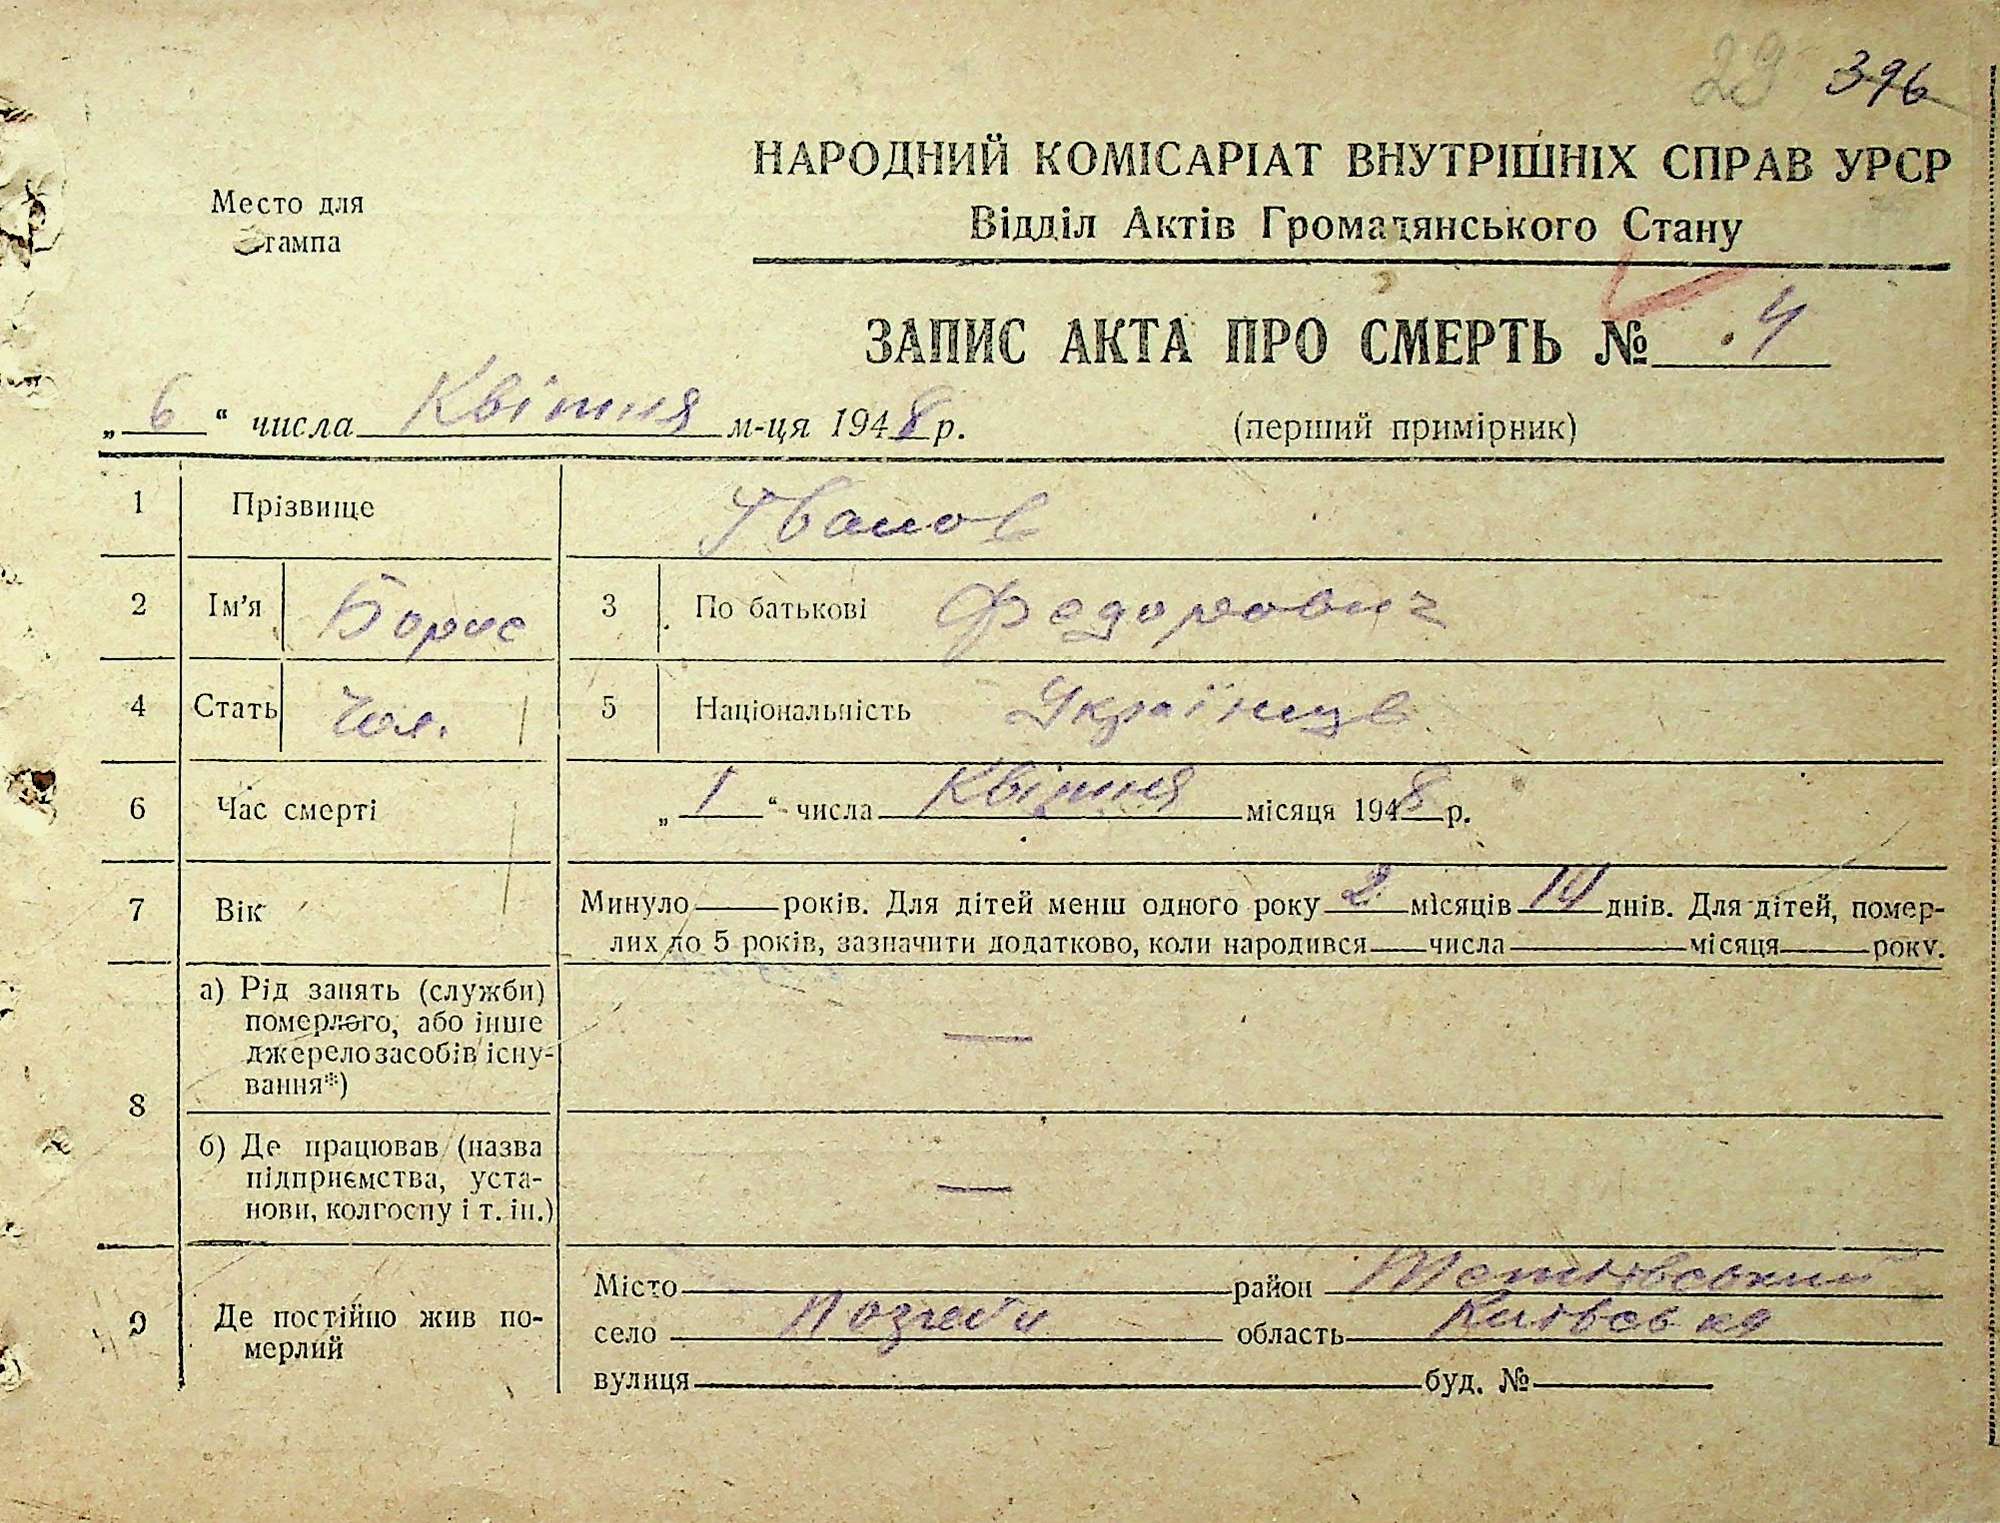 29 396
НАРОДНИЙ КОМІСАРІАТ ВНУТРІШНІХ СПРАВ УРСР
Место для
Штампа
Відділ Актів Громадянського Стану
ЗАПИС АКТА ПРО СМЕРТЬ № 4
„6“ числа Квітня м-ця 1948 р. (перший примірник)
1 Прізвище Іванов
2 Ім'я Борис 3 По батькові Федорович
4 Стать Чол. 5 Національність Українців
6 Час смерті „1“ числа Квітня місяця 1948 р.
7 Вік Минуло — років. Для дітей менш одного року 2 місяців 14 днів. Для дітей, помер-
лих до 5 років, зазначити додатково, коли народився числа місяця року.
8 а) Рід занять (служби)
померлого, або інше
джерело засобів існу-
вання*) —
б) Де працював (назва
підприємства, уста-
нови, колгоспу і т. ін.) —
9 Де постійно жив по-
мерлий
Місто район
село область Київська
вулиця буд. №